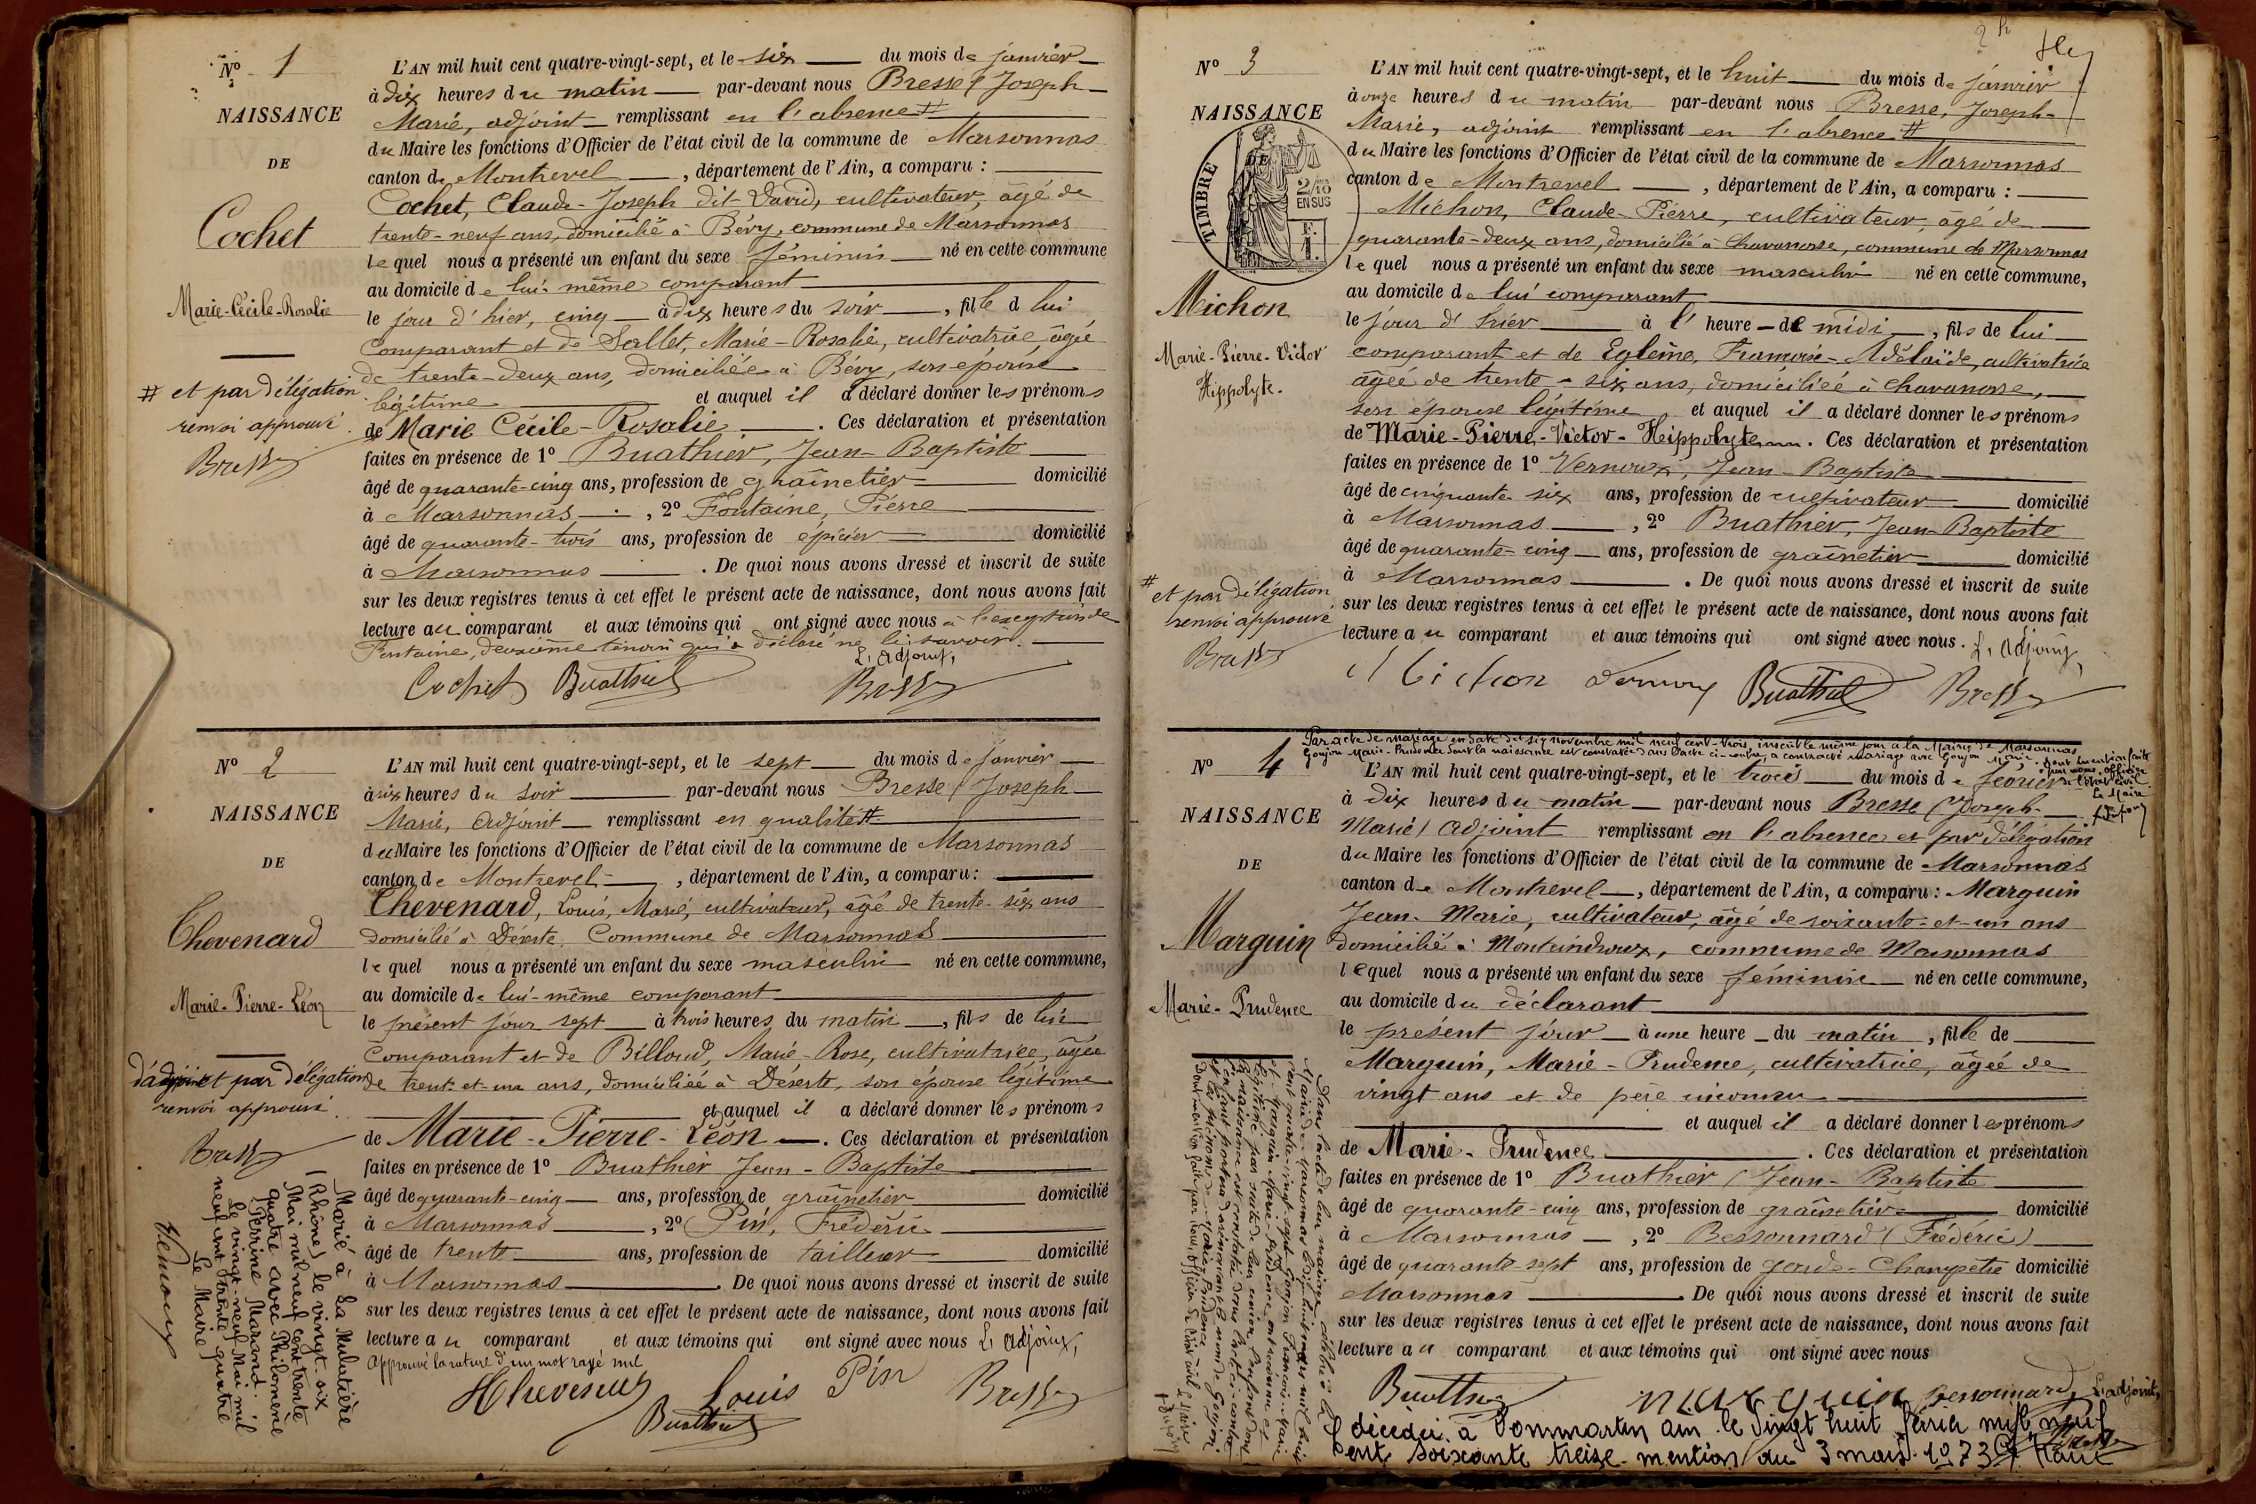 N° 1
NAISSANCE
DE
Cochet
Marie-Cécile-Rosalie
# et par délégation
renvoi approuvé.
Bresse
L'AN mil huit cent quatre-vingt-sept, et le six du mois de janvier
à dix heures du matin par-devant nous Bresse, Joseph
Marie, adjoint remplissant en l'absence #
du Maire les fonctions d'Officier de l'état civil de la commune de Marsonnas
canton de Montrevel, département de l'Ain, a comparu :
Cochet, Claude-Joseph dit David, cultivateur, âgé de
trente-neuf ans, domicilié à Bévy, commune de Marsonnas
lequel nous a présenté un enfant du sexe féminin né en cette commune
au domicile de lui-même comparant
le jour d'hier, cinq à dix heures du soir, fille d lui
comparant et de Sallet, Marie-Rosalie, cultivatrice âgée
de trente-deux ans, domiciliée à Bévy, son épouse
légitime et auquel il a déclaré donner les prénoms
de Marie Cécile-Rosalie. Ces déclaration et présentation
faites en présence de 1° Buathier, Jean-Baptiste
âgé de quarante-cinq ans, profession de grainetier domicilié
à Marsonnas, 2° Fontaine, Pierre
âgé de quarante-trois ans, profession de épicier domicilié
à Marsonnas. De quoi nous avons dressé et inscrit de suite
sur les deux registres tenus à cet effet le présent acte de naissance, dont nous avons fait
lecture au comparant et aux témoins qui ont signé avec nous à l'exception de
Fontaine, deuxième témoin qui a déclaré ne le savoir.
L'adjoint,
Cochet Buathier Bresse
N° 2
NAISSANCE
DE
Chevenard
Marie-Pierre-Léon
et par délégation
renvoi approuvé.
Bresse
Marié à La Mulatière
(Rhône) le vingt-six
Mai mil neuf cent trente
quatre avec Philomène
Perrine Marand.
Le vingt-neuf Mai mil
neuf cent trente quatre
Le Maire
Vernoux
L'AN mil huit cent quatre-vingt-sept, et le sept du mois de janvier
à six heures du soir par-devant nous Bresse, Joseph
Marie, adjoint remplissant en qualité #
du Maire les fonctions d'Officier de l'état civil de la commune de Marsonnas
canton de Montrevel, département de l'Ain, a comparu :
Chevenard, Louis, Marie, cultivateur, âgé de trente-six ans
domicilié à Déserte, Commune de Marsonnas
lequel nous a présenté un enfant du sexe masculin né en cette commune,
au domicile de lui-même comparant
le présent jour sept à trois heures du matin, fils de lui
comparant et de Billoud, Marie-Rose, cultivatrice, âgée
de trente-et-un ans, domiciliée à Déserte, son épouse légitime
et auquel il a déclaré donner les prénoms
de Marie-Pierre-Léon. Ces déclaration et présentation
faites en présence de 1° Buathier Jean-Baptiste
âgé de quarante-cinq ans, profession de grainetier domicilié
à Marsonnas, 2° Pin, Frédéric
âgé de trente ans, profession de tailleur domicilié
à Marsonnas. De quoi nous avons dressé et inscrit de suite
sur les deux registres tenus à cet effet le présent acte de naissance, dont nous avons fait
lecture au comparant et aux témoins qui ont signé avec nous L'adjoint,
Approuvé la rature d'un mot rayé nul
Chevenard Louis Pin Bresse
Buathier
N° 3
NAISSANCE
DE
TIMBRE
2/10 EN SUS
F. 1.
Michon
Marie-Pierre-Victor
Hippolyte.
# et par délégation
renvoi approuvé
Bresse
L'AN mil huit cent quatre-vingt-sept, et le huit du mois de janvier
à onze heures du matin par-devant nous Bresse, Joseph-
Marie, adjoint remplissant en l'absence #
du Maire les fonctions d'Officier de l'état civil de la commune de Marsonnas
canton de Montrevel, département de l'Ain, a comparu :
Michon, Claude-Pierre, cultivateur, âgé de
quarante-deux ans, domicilié à Chavanosse, commune de Marsonnas
lequel nous a présenté un enfant du sexe masculin né en cette commune,
au domicile de lui comparant
le jour d'hier à l'heure de midi, fils de lui
comparant et de Egleine, Françoise-Adélaïde, cultivatrice
âgée de trente-six ans, domiciliée à Chavanosse,
son épouse légitime et auquel il a déclaré donner les prénoms
de Marie-Pierre-Victor-Hippolyte. Ces déclaration et présentation
faites en présence de 1° Vernoux, Jean-Baptiste
âgé de cinquante-six ans, profession de cultivateur domicilié
à Marsonnas, 2° Buathier, Jean-Baptiste
âgé de quarante-cinq ans, profession de grainetier domicilié
à Marsonnas. De quoi nous avons dressé et inscrit de suite
sur les deux registres tenus à cet effet le présent acte de naissance, dont nous avons fait
lecture au comparant et aux témoins qui ont signé avec nous. L'adjoint,
Michon Vernoux Buathier Bresse
Par acte de mariage en date du six novembre mil neuf cent-trois, inscrit le même jour à la Mairie de Marsonnas
Goujon Marie-Prudence dont la naissance est constatée dans l'acte ci-contre, a contracté mariage avec Goujon
dont mention faite
par nous, officier
de l'état civil
Le Maire
N° 4
NAISSANCE
DE
Marguin
Marie-Prudence
L'AN mil huit cent quatre-vingt-sept, et le trois du mois de février
à dix heures du matin par-devant nous Bresse (Joseph-
Marie) adjoint remplissant en l'absence et par délégation
du Maire les fonctions d'Officier de l'état civil de la commune de Marsonnas
canton de Montrevel, département de l'Ain, a comparu : Marguin
Jean-Marie, cultivateur, âgé de soixante-et-un ans
domicilié à Montcindroux, commune de Marsonnas
lequel nous a présenté un enfant du sexe féminin né en cette commune,
au domicile du déclarant
le présent jour à une heure du matin, fille de
Marguin, Marie-Prudence, cultivatrice, âgée de
vingt ans et de père inconnu
et auquel il a déclaré donner les prénoms
de Marie-Prudence. Ces déclaration et présentation
faites en présence de 1° Buathier (Jean-Baptiste
âgé de quarante-cinq ans, profession de grainetier domicilié
à Marsonnas, 2° Bessonnard (Frédéric)
âgé de quarante-sept ans, profession de garde-Champêtre domicilié
Marsonnas. De quoi nous avons dressé et inscrit de suite
sur les deux registres tenus à cet effet le présent acte de naissance, dont nous avons fait
lecture au comparant et aux témoins qui ont signé avec nous
Buathier marguin Bessonnard L'adjoint,
décédée à Dommartin ain le vingt huit février mil neuf
cent soixante treize mention du 3 mars 1973